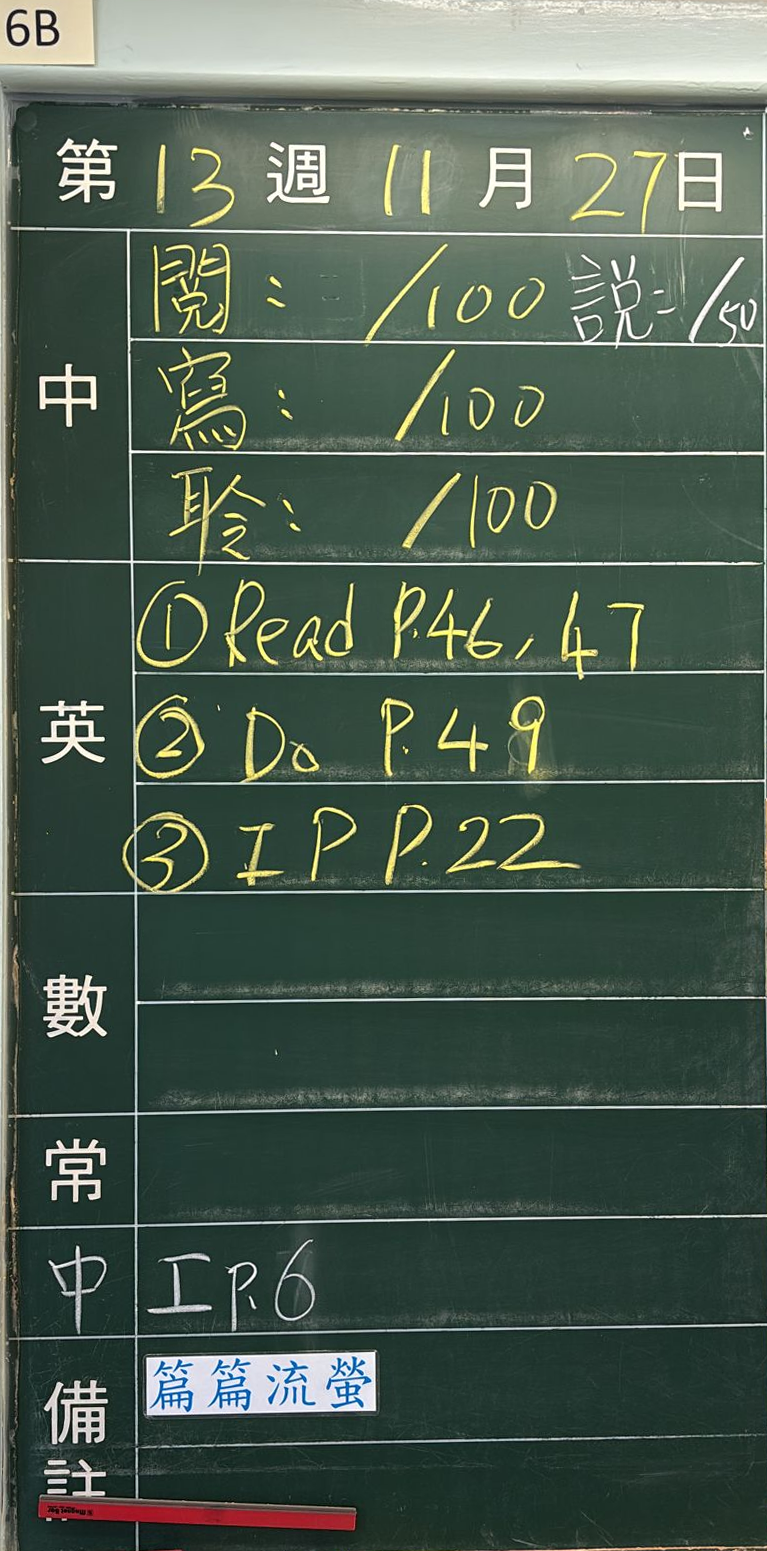 6B
第 13 週 11 月 27 日
中
閱: /100 説: /50
寫: /100
聆: /100
英
① Read P.46, 47
② Do P.49
③ IP P.22
數
常
中 工 P.6
備註
篇篇流螢